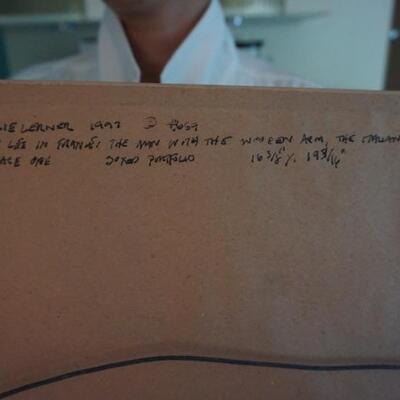 LIE LERNER 1993
LIFE IN FRANCE: THE MAN WITH THE WOODEN ARM, THE
PAGE ONE BOXED PORTFOLIO 16 3/8" X 19 3/16"